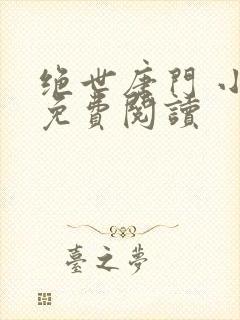 绝世唐门 小
免費閱讀
臺之夢